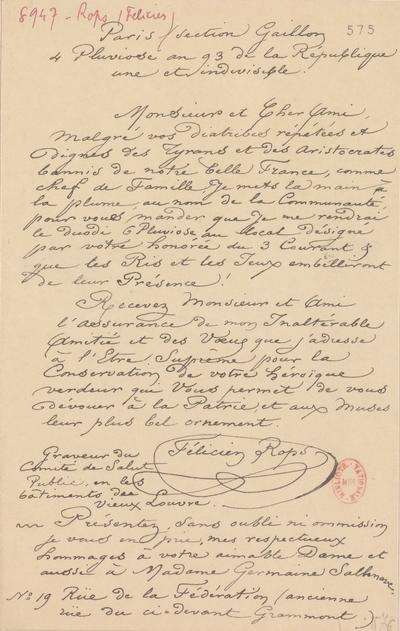 8947 - Rops (Félicien)
575
Paris (section Gaillon
4 Pluviose an 93 de la République
une et indivisible.
Monsieur et Cher Ami,
Malgré vos diatribes répétées et
dignes des Tyrans et des Aristocrates
bannis de notre belle France, comme
chef de Famille, Je mets la main à
la plume, au nom de la Communauté,
pour vous mander que Je me rendrai
le duodi 6 Pluviose au local désigné
par votre honorée du 3 Courant &
que les Ris et les Jeux embelliront
de leur Présence!
Recevez Monsieur et Ami
l'assurance de mon Inaltérable
Amitié et des Vœux que j'adresse
à l'Etre Suprème pour la
Conservation de votre héroïque
verdeur qui Vous permet de vous
dévouer à la Patrie et aux Muses
leur plus bel ornement.
Félicien Rops
Graveur du
Comité de Salut
Public, en les
bâtiments des
Vieux Louvre.
Présentez, sans oubli ni ommission
je vous en prie, mes respectueux
hommages à votre aimable Dame et
aussi à Madame Germaine
No 19 Rüe de la Fédération (ancienne
rüe du ci-devant Grammont.)